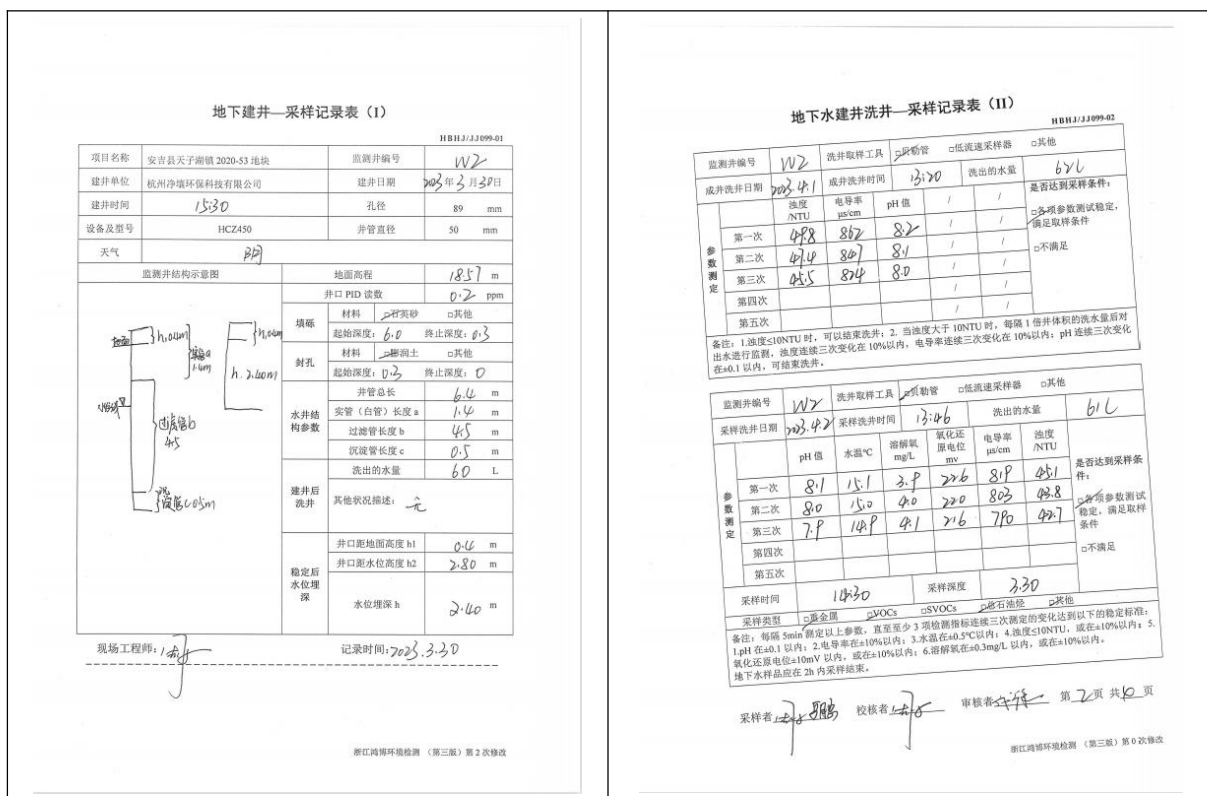 地下建井—采样记录表（I）
HBHJ/JJ099-01
项目名称 安吉县天子湖镇 2020-53 地块 监测井编号 W2
建井单位 杭州净壤环保科技有限公司 建井日期 2023年3月30日
建井时间 15:30 孔径 89 mm
设备及型号 HCZ450 井管直径 50 mm
天气 阴
监测井结构示意图 地面高程 18.57 m
井口 PID 读数 0.2 ppm
填砾 材料 □石英砂 □其他
起始深度：6.0 终止深度：0.3
封孔 材料 □膨润土 □其他
起始深度：0.3 终止深度：0
水井结构参数 井管总长 6.4 m
实管（白管）长度 a 1.4 m
过滤管长度 b 4.5 m
沉淀管长度 c 0.5 m
建井后洗井 洗出的水量 60 L
其他状况描述：无
稳定后水位埋深 井口距地面高度 h1 0.4 m
井口距水位高度 h2 2.80 m
水位埋深 h 2.40 m
地面
h1 0.4m
1.4m
h 2.40m
过滤管b
4.5
现场工程师：
记录时间：2023.3.30
浙江鸿博环境检测 （第三版）第 2 次修改
地下水建井洗井—采样记录表（II）
HBHJ/JJ099-02
监测井编号 W2 洗井取样工具 □贝勒管 □低流速采样器 □其他
成井洗井日期 2023.4.1 成井洗井时间 13:20 洗出的水量 62L
参数测定 浊度/NTU 电导率 μs/cm pH 值 / / 是否达到采样条件：
第一次 49.8 862 8.2 / /
第二次 47.4 847 8.1 / /
第三次 45.5 824 8.0 / /
第四次 / /
第五次 / /
□各项参数测试稳定，满足取样条件
□不满足
备注：1.浊度≤10NTU 时，可以结束洗井；2. 当浊度大于 10NTU 时，每隔 1 倍井体积的洗水量后对
出水进行监测，浊度连续三次变化在 10%以内，电导率连续三次变化在 10%以内；pH 连续三次变化
在±0.1 以内，可结束洗井。
监测井编号 W2 洗井取样工具 □贝勒管 □低流速采样器 □其他
采样洗井日期 2023.4.2 采样洗井时间 13:46 洗出的水量 61L
参数测定 pH 值 水温℃ 溶解氧 mg/L 氧化还原电位 mv 电导率 μs/cm 浊度/NTU 是否达到采样条件：
第一次 8.1 15.1 3.9 226 819 45.1
第二次 8.0 15.0 4.0 220 803 43.8
第三次 7.9 14.9 4.1 216 790 42.7
第四次
第五次
□各项参数测试稳定，满足取样条件
□不满足
采样时间 14:30 采样深度 3.30
采样类型 □重金属 □VOCs □SVOCs □总石油烃 □其他
备注：每隔 5min 测定以上参数，直至至少 3 项检测指标连续三次测定的变化达到以下的稳定标准：
1.pH 在±0.1 以内；2.电导率在±10%以内；3.水温在±0.5℃以内；4.浊度≤10NTU，或在±10%以内；5.
氧化还原电位±10mV 以内，或在±10%以内；6.溶解氧在±0.3mg/L 以内，或在±10%以内。
地下水样品应在 2h 内采样结束。
采样者 校核者 审核者 第 2 页 共 页
浙江鸿博环境检测 （第三版）第 0 次修改